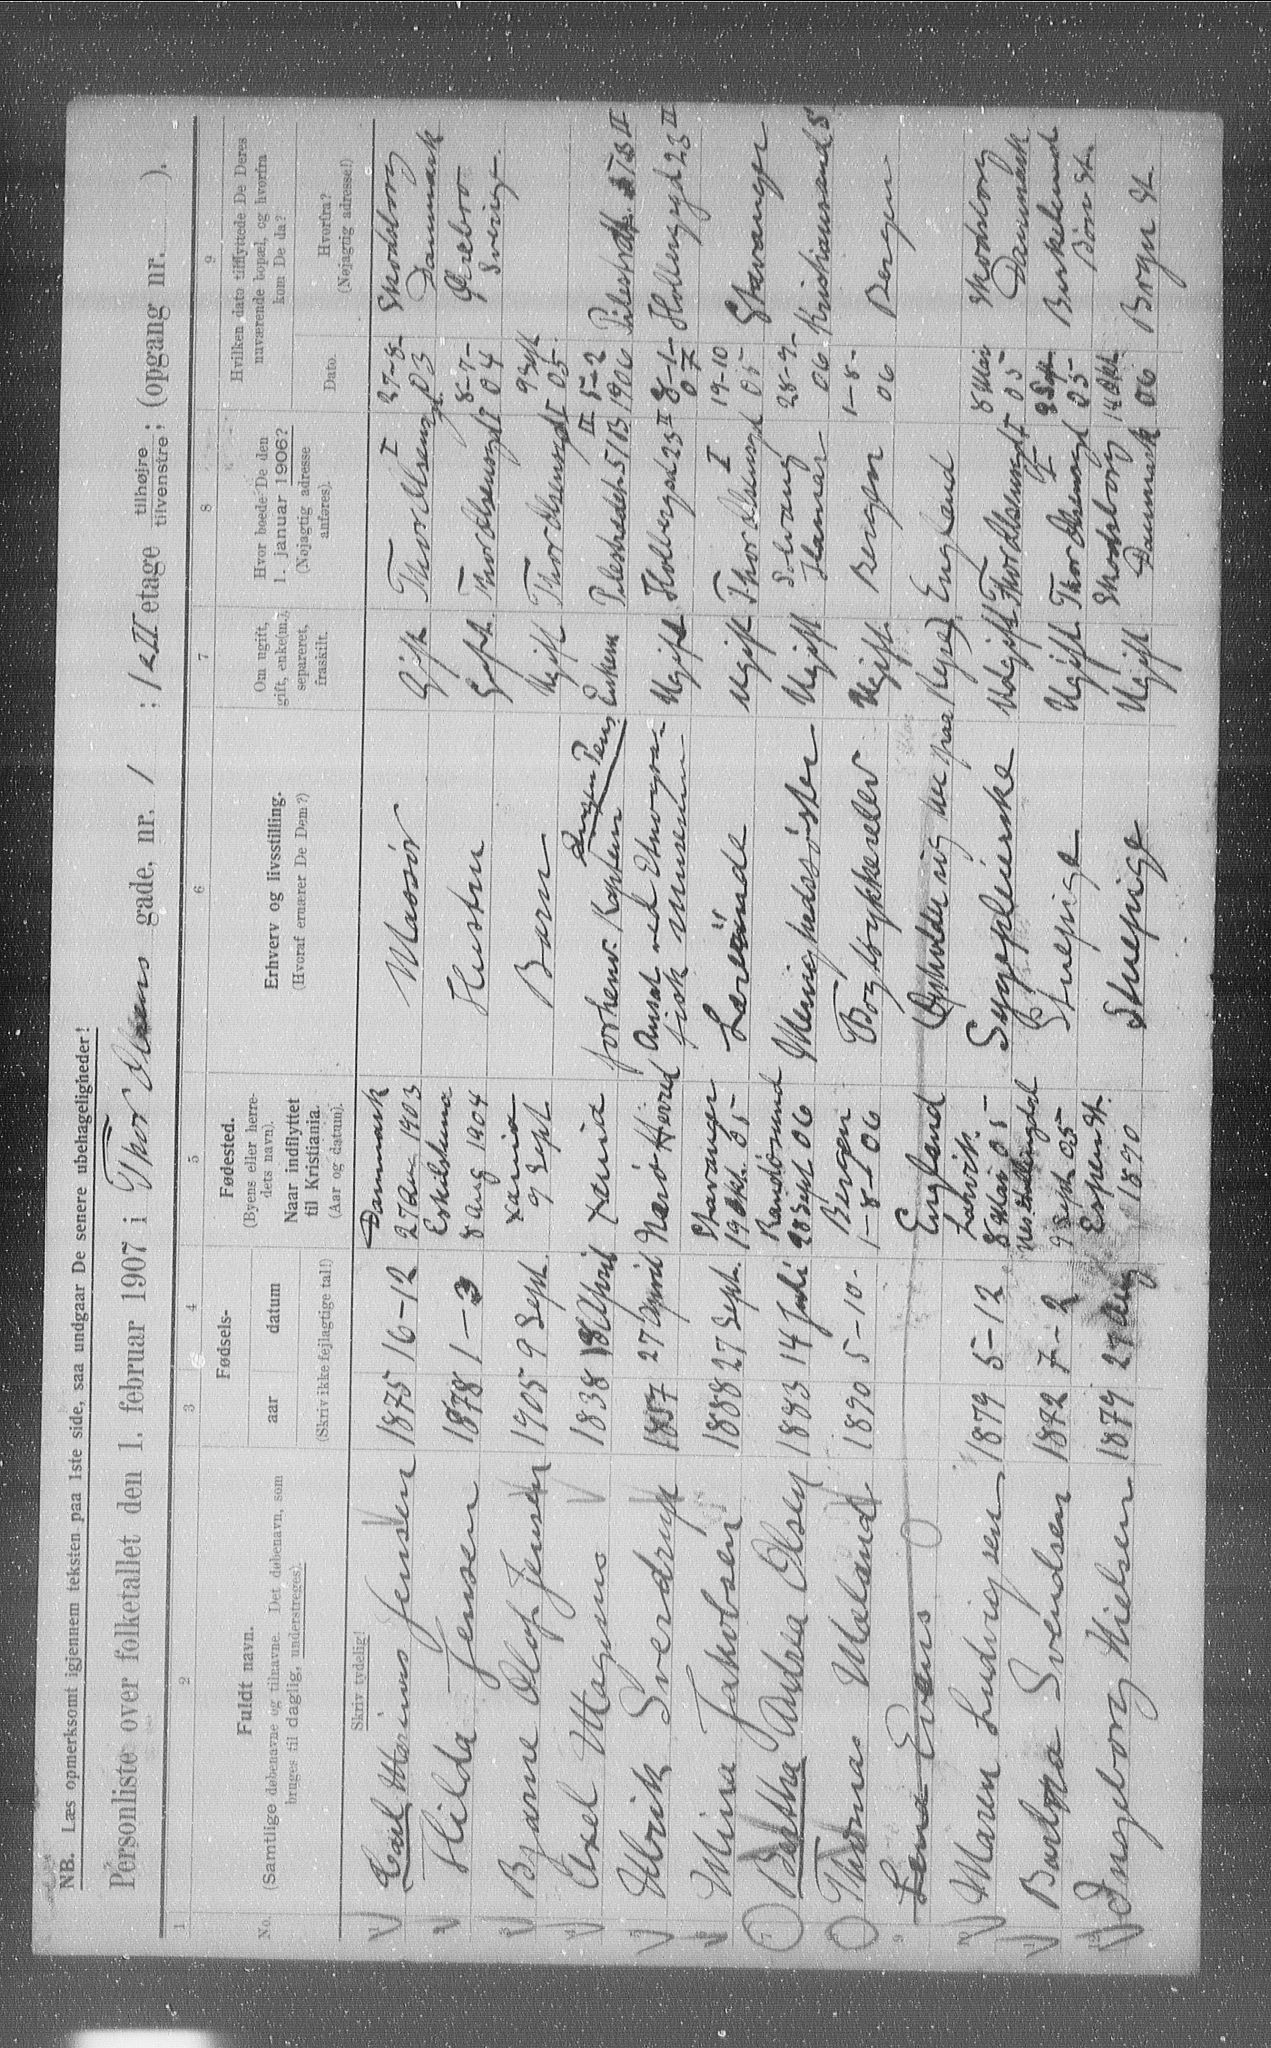 NB. Læs opmerksomt igjennem teksten paa 1ste side, saa undgaar De senere ubehageligheder!
Personliste over folketallet den 1. februar 1907 i Thor Olsens gade, nr. 1 ; 1 & II etage tilhøjre tilvenstre; (opgang nr. ).
1 2 3 4 5 6 7 8 9
No. Fuldt navn. (Samtlige døbenavne og tilnavne. Det døbenavn, som bruges til daglig, understreges).
Fødsels- aar datum
(Skriv ikke fejlagtige tal!)
Fødested. (Byens eller herredets navn). Naar indflyttet til Kristiania. (Aar og datum).
Erhverv og livsstilling. (Hvoraf ernærer De Dem?)
Om ugift, gift, enke(m.), separeret, fraskilt.
Hvor boede De den 1. januar 1906? (Nøjagtig adresse anføres).
Hvilken dato tilflyttede De Deres nuværende bopæl, og hvorfra kom De da?
Dato. Hvorfra? (Nøjagtig adresse!)
Skriv tydelig!
1 Carl Marinus Jensen 1875 16-12 Danmark 27 Aug 1903 Massør Gift Thor Olsensgd. 1 27-8-03 Skodsborg Danmark
2 Hilda Jensen 1878 1-3 Eskilstuna 8 Aug 1904 Hustru Gift Thor Olsensgd 1 8-7-04 Ørebro Sverige
3 Bjarne Olaf Jensen 1905 9 Sept. Xania 9 Sept. Barn Ugift Thor Olsensgd 1 9 Sept 05
4 Axel Magnus 1838 April Xania forhenv. Kaptein Pens. Enkem Pilestrædet 5/13 II 5-2 1906 Pilestr. 13 II
5 Ulrik Sverdrup 1857 27 April Nærø Herred Ansat ved Etnografisk Museum Ugift Holbergsgd 23 II 8-1-07 Holbergsgd 23 II
6 Mina Jakobsen 1888 27 Sept. Stavanger 19 Okt. 05 Lærerinde Ugift Thor Olsensgd 1 19-10 05 Stavanger
7 Bertha Andrea Olsen 1883 14 Juli Randøsund 28 Sept 06 Menighedssøster Ugift Solvang Hamar 28-9-06 Kristiansand S
8 Thomas Maland 1890 5-10- Bergen 1-8-06 Bogtrykkerelev Ugift. Bergen 1-8-06 Bergen
9 Lena Evans England (Opholder sig her paa Rejse) England
10 Maren Ludvigsen 1879 5-12 Larvik 8 Mai 05 Sygepleierske Ugift Thor Olsensgd 1 8 Mai 05 Skodsborg Danmark
11 Svendsen 7-2 9 Sept. 05 Stuepige Ugift Thor Olsensgd 1 9 Sept 05 Birkelund
12 Ingeborg Nielsen 1879 27 Aug Espen St. 1890 Stuepige Ugift Skodsborg Danmark 14 Okt. 06 Bryn St.